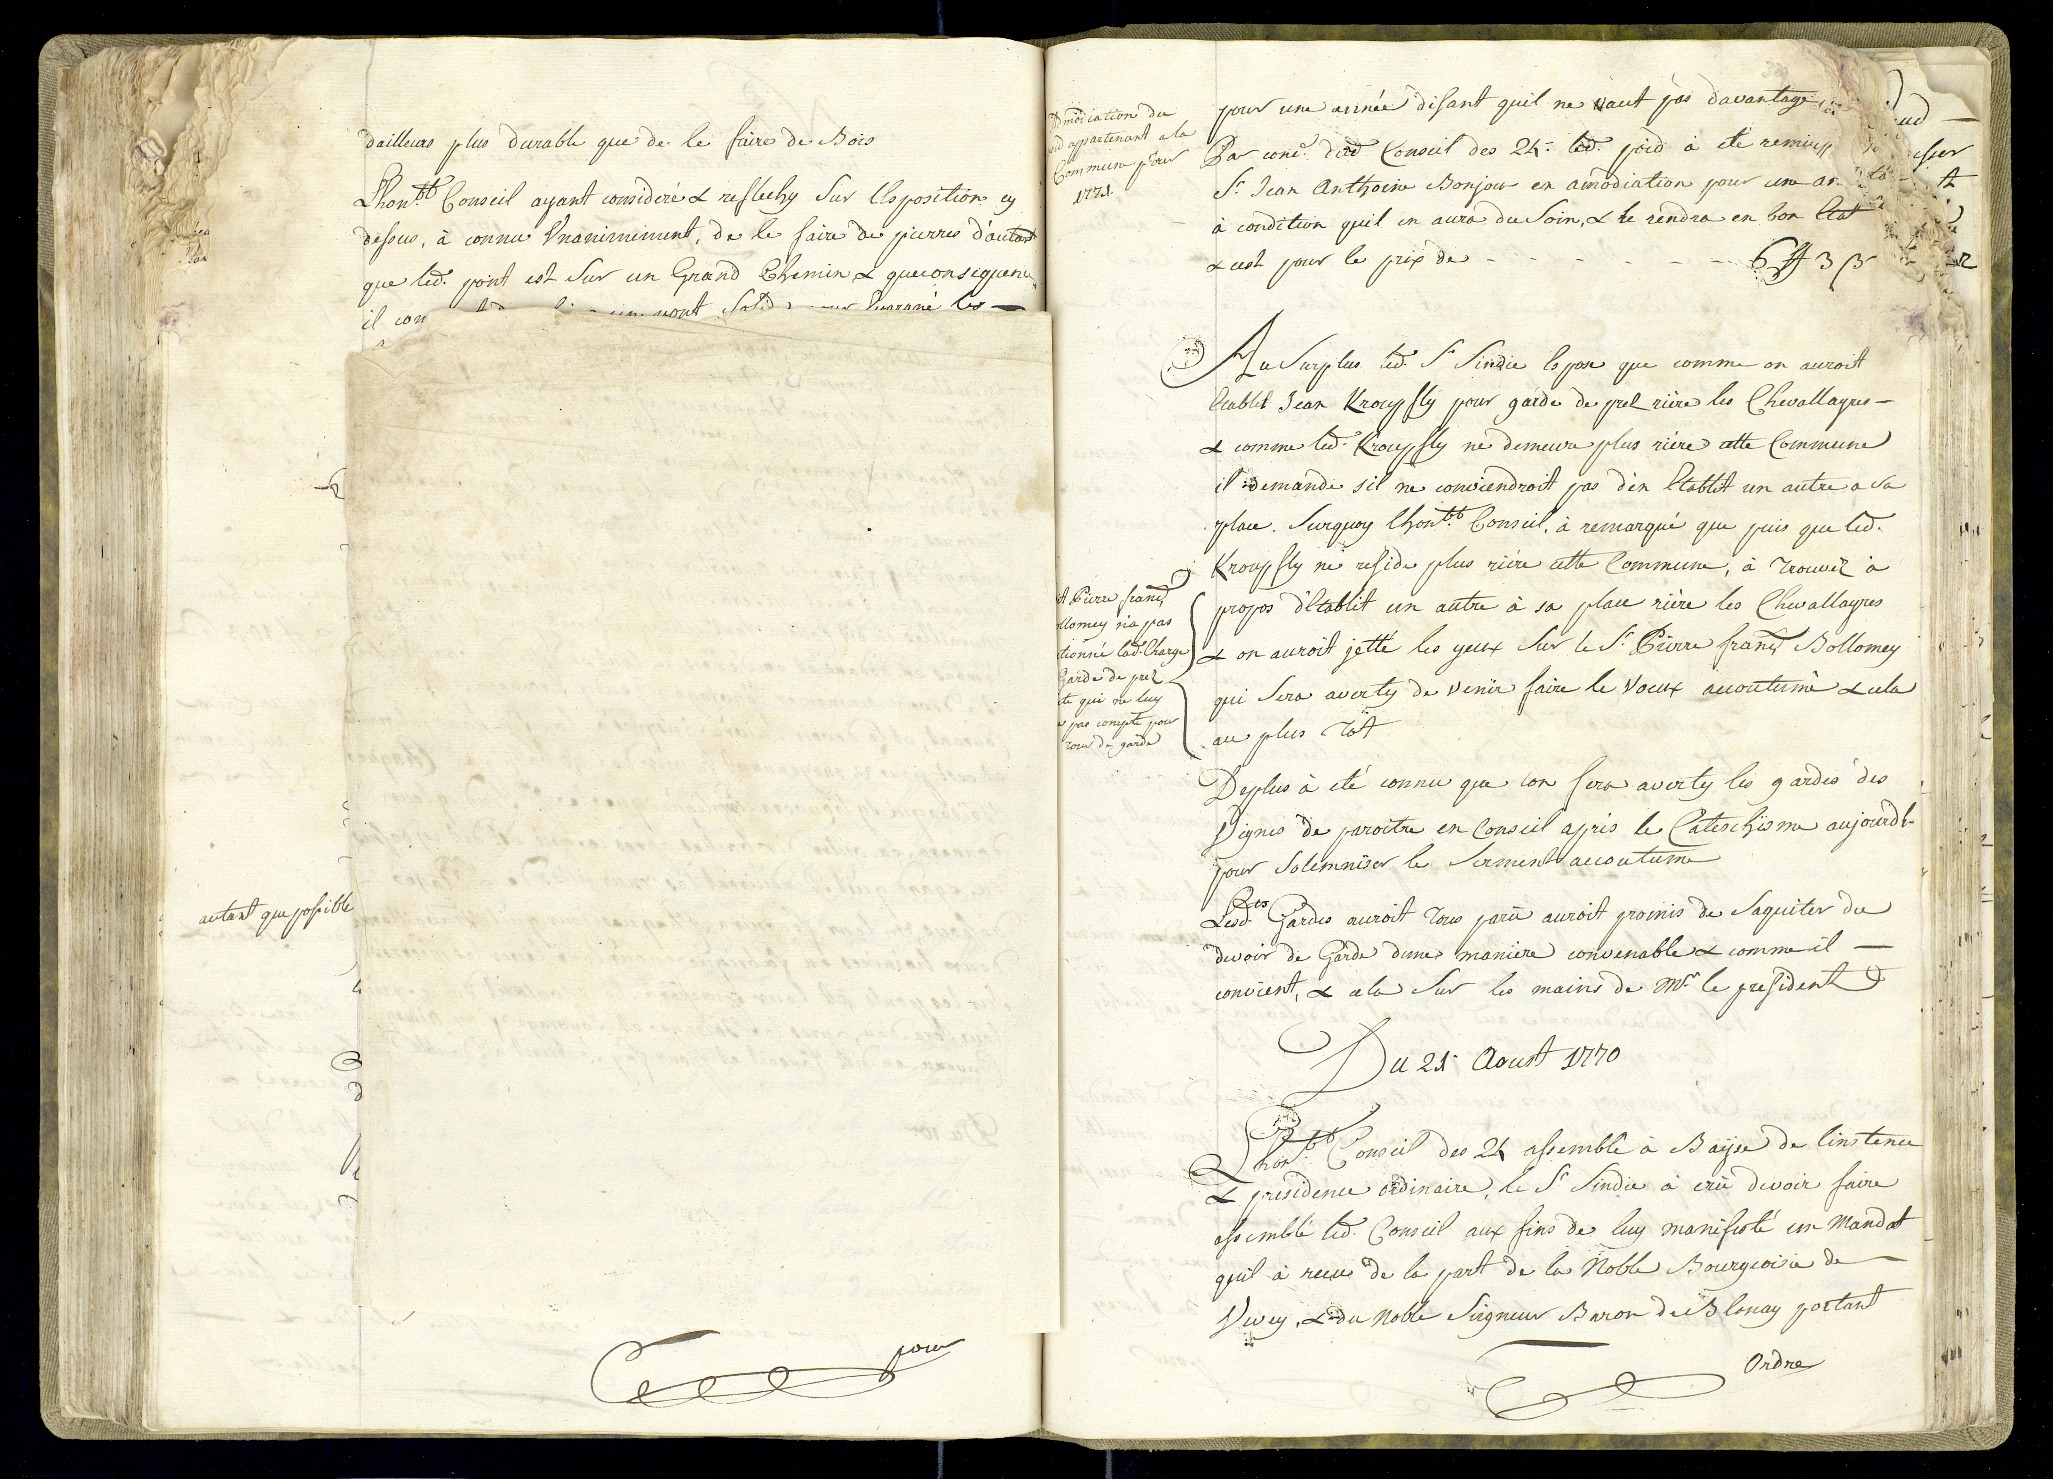 dailleurs plus durable que de le faire de Bois
Lhon.ble Conseil ayant consideré & reflechy Sur Lexposition cy
dessus, à connu Unanimement, de le faire de pierres d'autant
que led. pont est Sur un Grand Chemin & queconsequence
il con
autant que possible
pour
Admodiation du
poid appartenant a la
Commune pour
1771.
pour une année disant quil ne vaut pas davantage
Par con.e dud Conseil des 24. led. poid à êté remis
S.r Jean Anthoine Bonjour en amodiation pour une an
à condition quil en aura du Soin, & le rendra en bon Etat
& cest pour le prix de - - - - - - - 6 ff 3 β
Au Surplus led. S.r Sindic Expose que comme on auroit
Etablit Jean Kroupfly pour garde de prel rière les Chevallayres
& comme led. Kroupfly ne demeure plus rière cette Commune
il demande sil ne conviendroit pas d'en Etablit un autre a sa
place. Surquoy Lhon.ble Conseil, à remarqué que puis que led.
Kroupfly ne reside plus rière cette Commune, à Trouvez à
propos d'Etablit un autre à sa place rière les Chevallayres
& on auroit jetté les yeux Sur le S.r Pierre franç Bollomey
qui Sera averty de venir faire le Voeux accoutumé & cela
au plus Tôt
Pierre franç
llomey n'a pas
tionné lad. Charge
Garde de prel
te qui ne luy
pas compté pour
Tour de garde
Deplus à eté connu que lon fera averty les gardes des
Vignes de paroitre en Conseil après le Cateschisme aujourdh.
pour Solemniser le Serment accoutumé
Lesd. Gardes auroit Tous parû auroit promis de Saquiter du
devoir de Garde d'une maniere convenable & comme il
convient, & cela Sur les mains de M.r le president
Du 21. Aoust 1770
Lhon.ble Conseil des 24 assemblé à Bayse de linstence
& presidence ordinaire, le S.r Sindic à crû devoir faire
assemblé led. Conseil aux fins de luy manifesté un Mandat
quil à receu de la part de la Noble Bourgeoisie de
Vevey, & du Noble Seigneur Baron de Blonay portant
Ordre